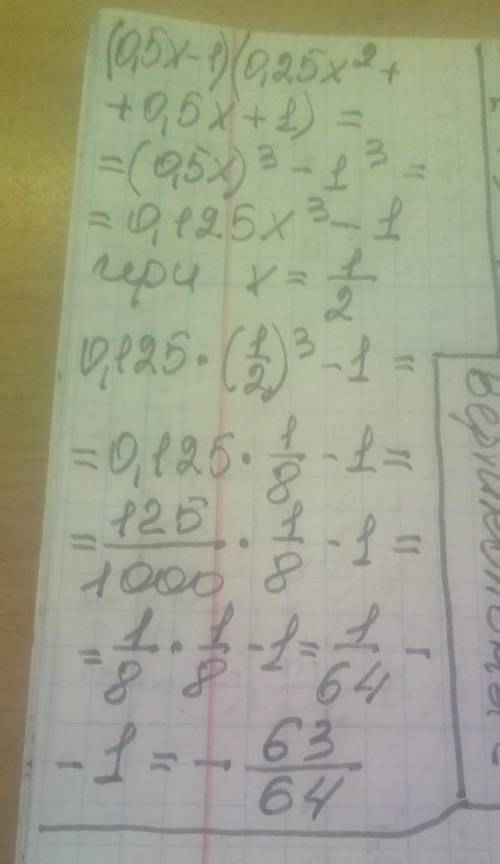 (0,5x-1)(0,25x²+
+0,5x+1)=
=(0,5x)³-1³=
=0,125x³-1
при x=1/2
0,125·(1/2)³-1=
=0,125·1/8-1=
=125/1000·1/8-1=
=1/8·1/8-1=1/64-
-1=-63/64